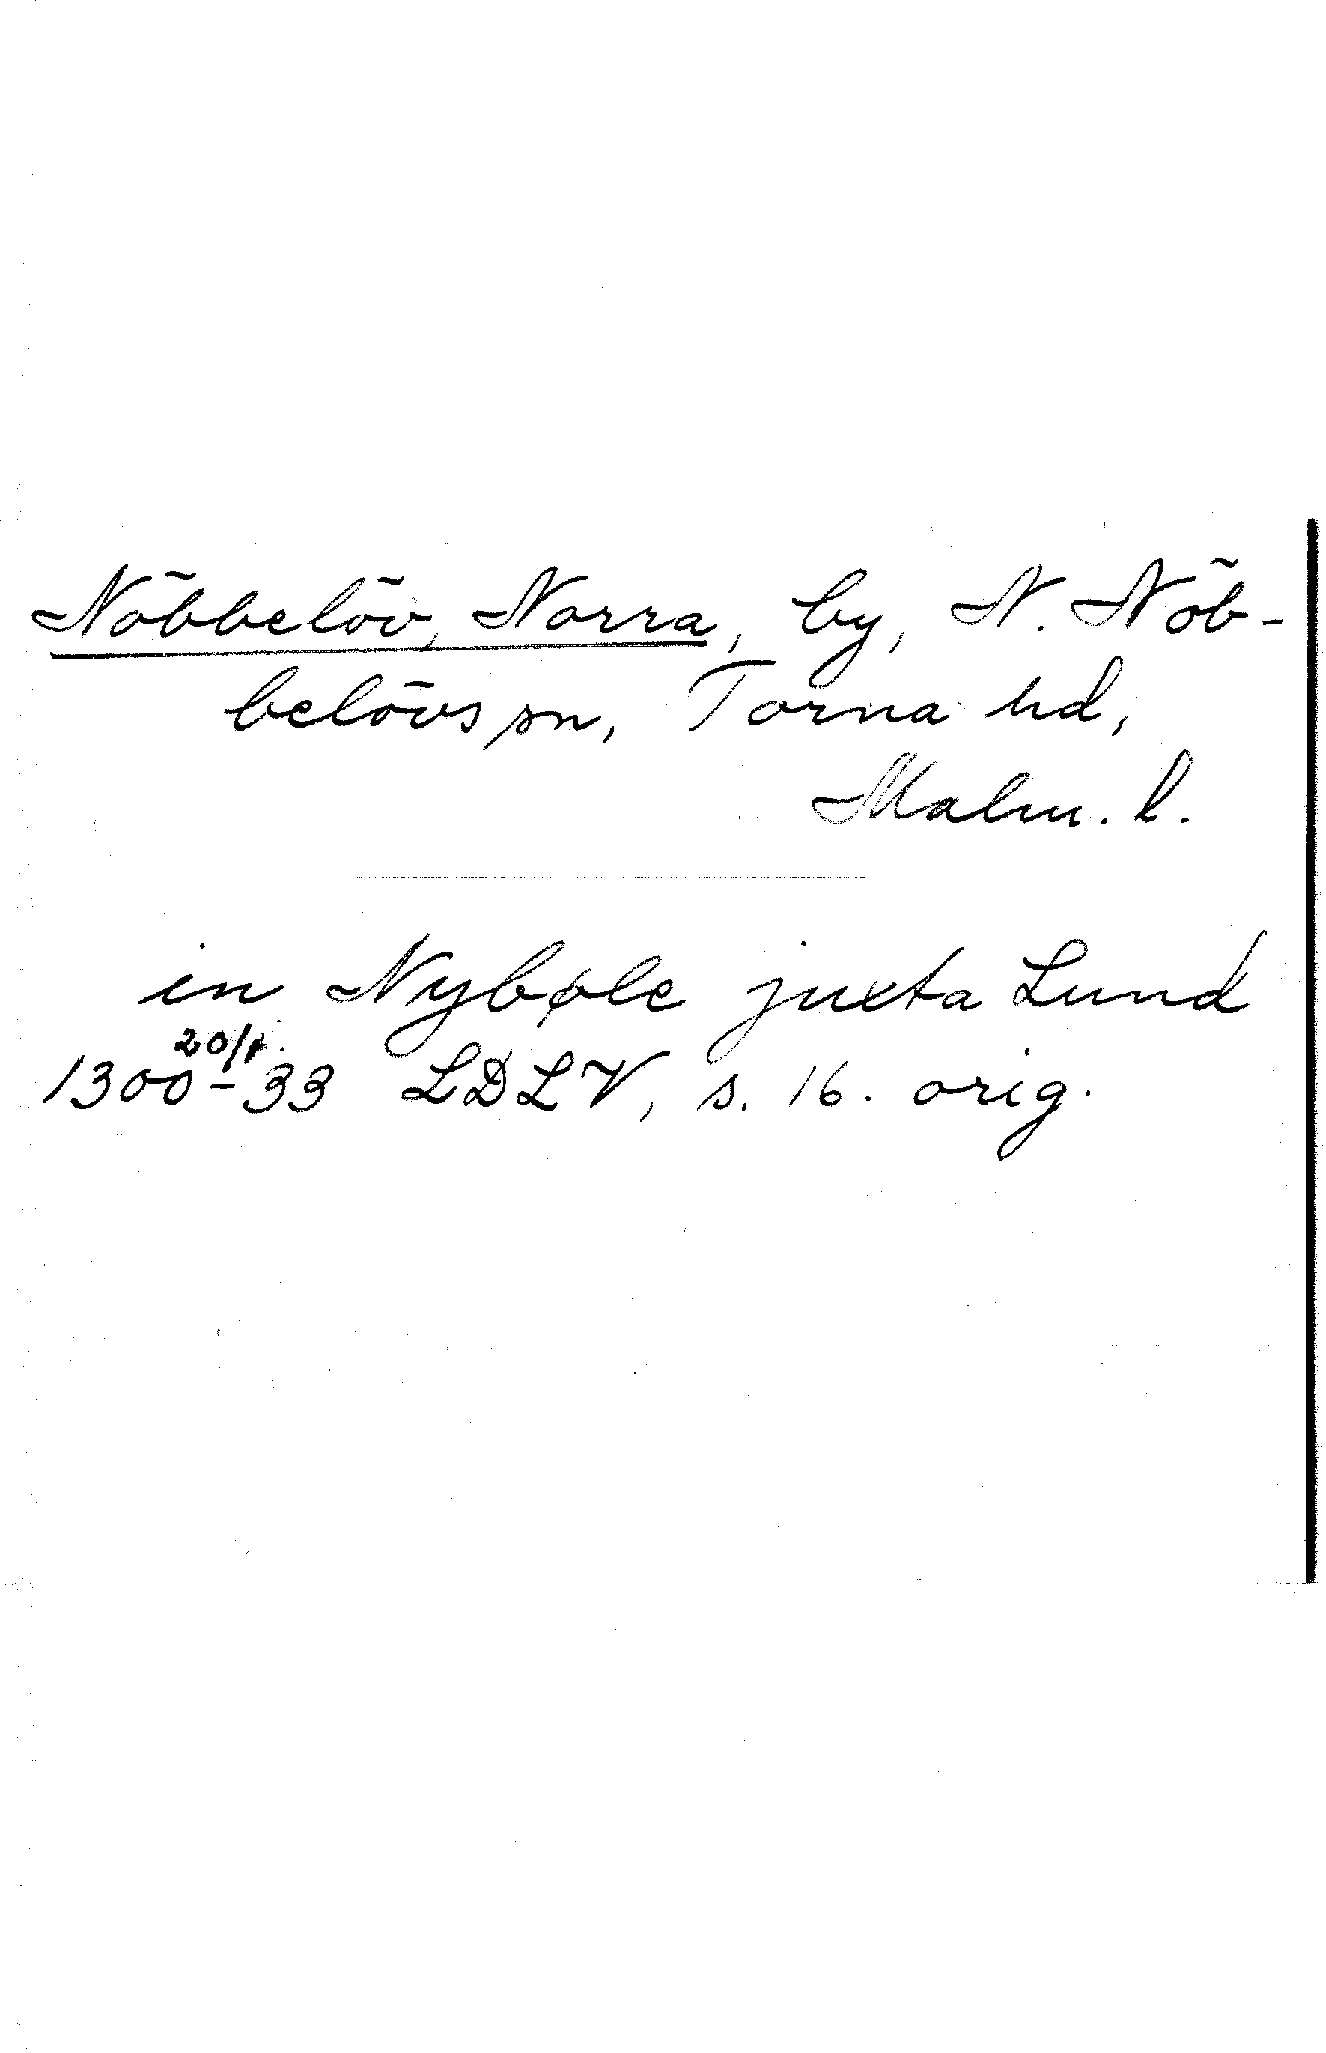 Nöbbelöv, Norra, by, N. Nöb-
belövs sn, Torna hd,
Malm. l.
in Nybøle juxta Lund
1300-33 LDLV, s. 16. orig.